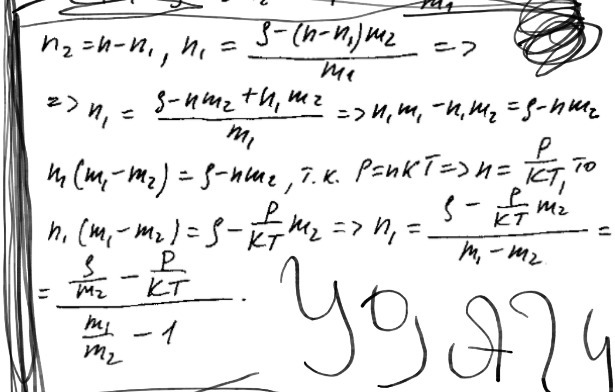 m₁
n₂ = n - n₁, n₁ = (ρ - (n - n₁)m₂)/m₁ =>
=> n₁ = (ρ - nm₂ + n₁m₂)/m₁ => n₁m₁ - n₁m₂ = ρ - nm₂
n₁(m₁ - m₂) = ρ - nm₂, т.к. P = nKT => n = P/KT, то
n₁(m₁ - m₂) = ρ - P/KT m₂ => n₁ = (ρ - P/KT m₂)/(m₁ - m₂) =
= (ρ/m₂ - P/KT)/(m₁/m₂ - 1).